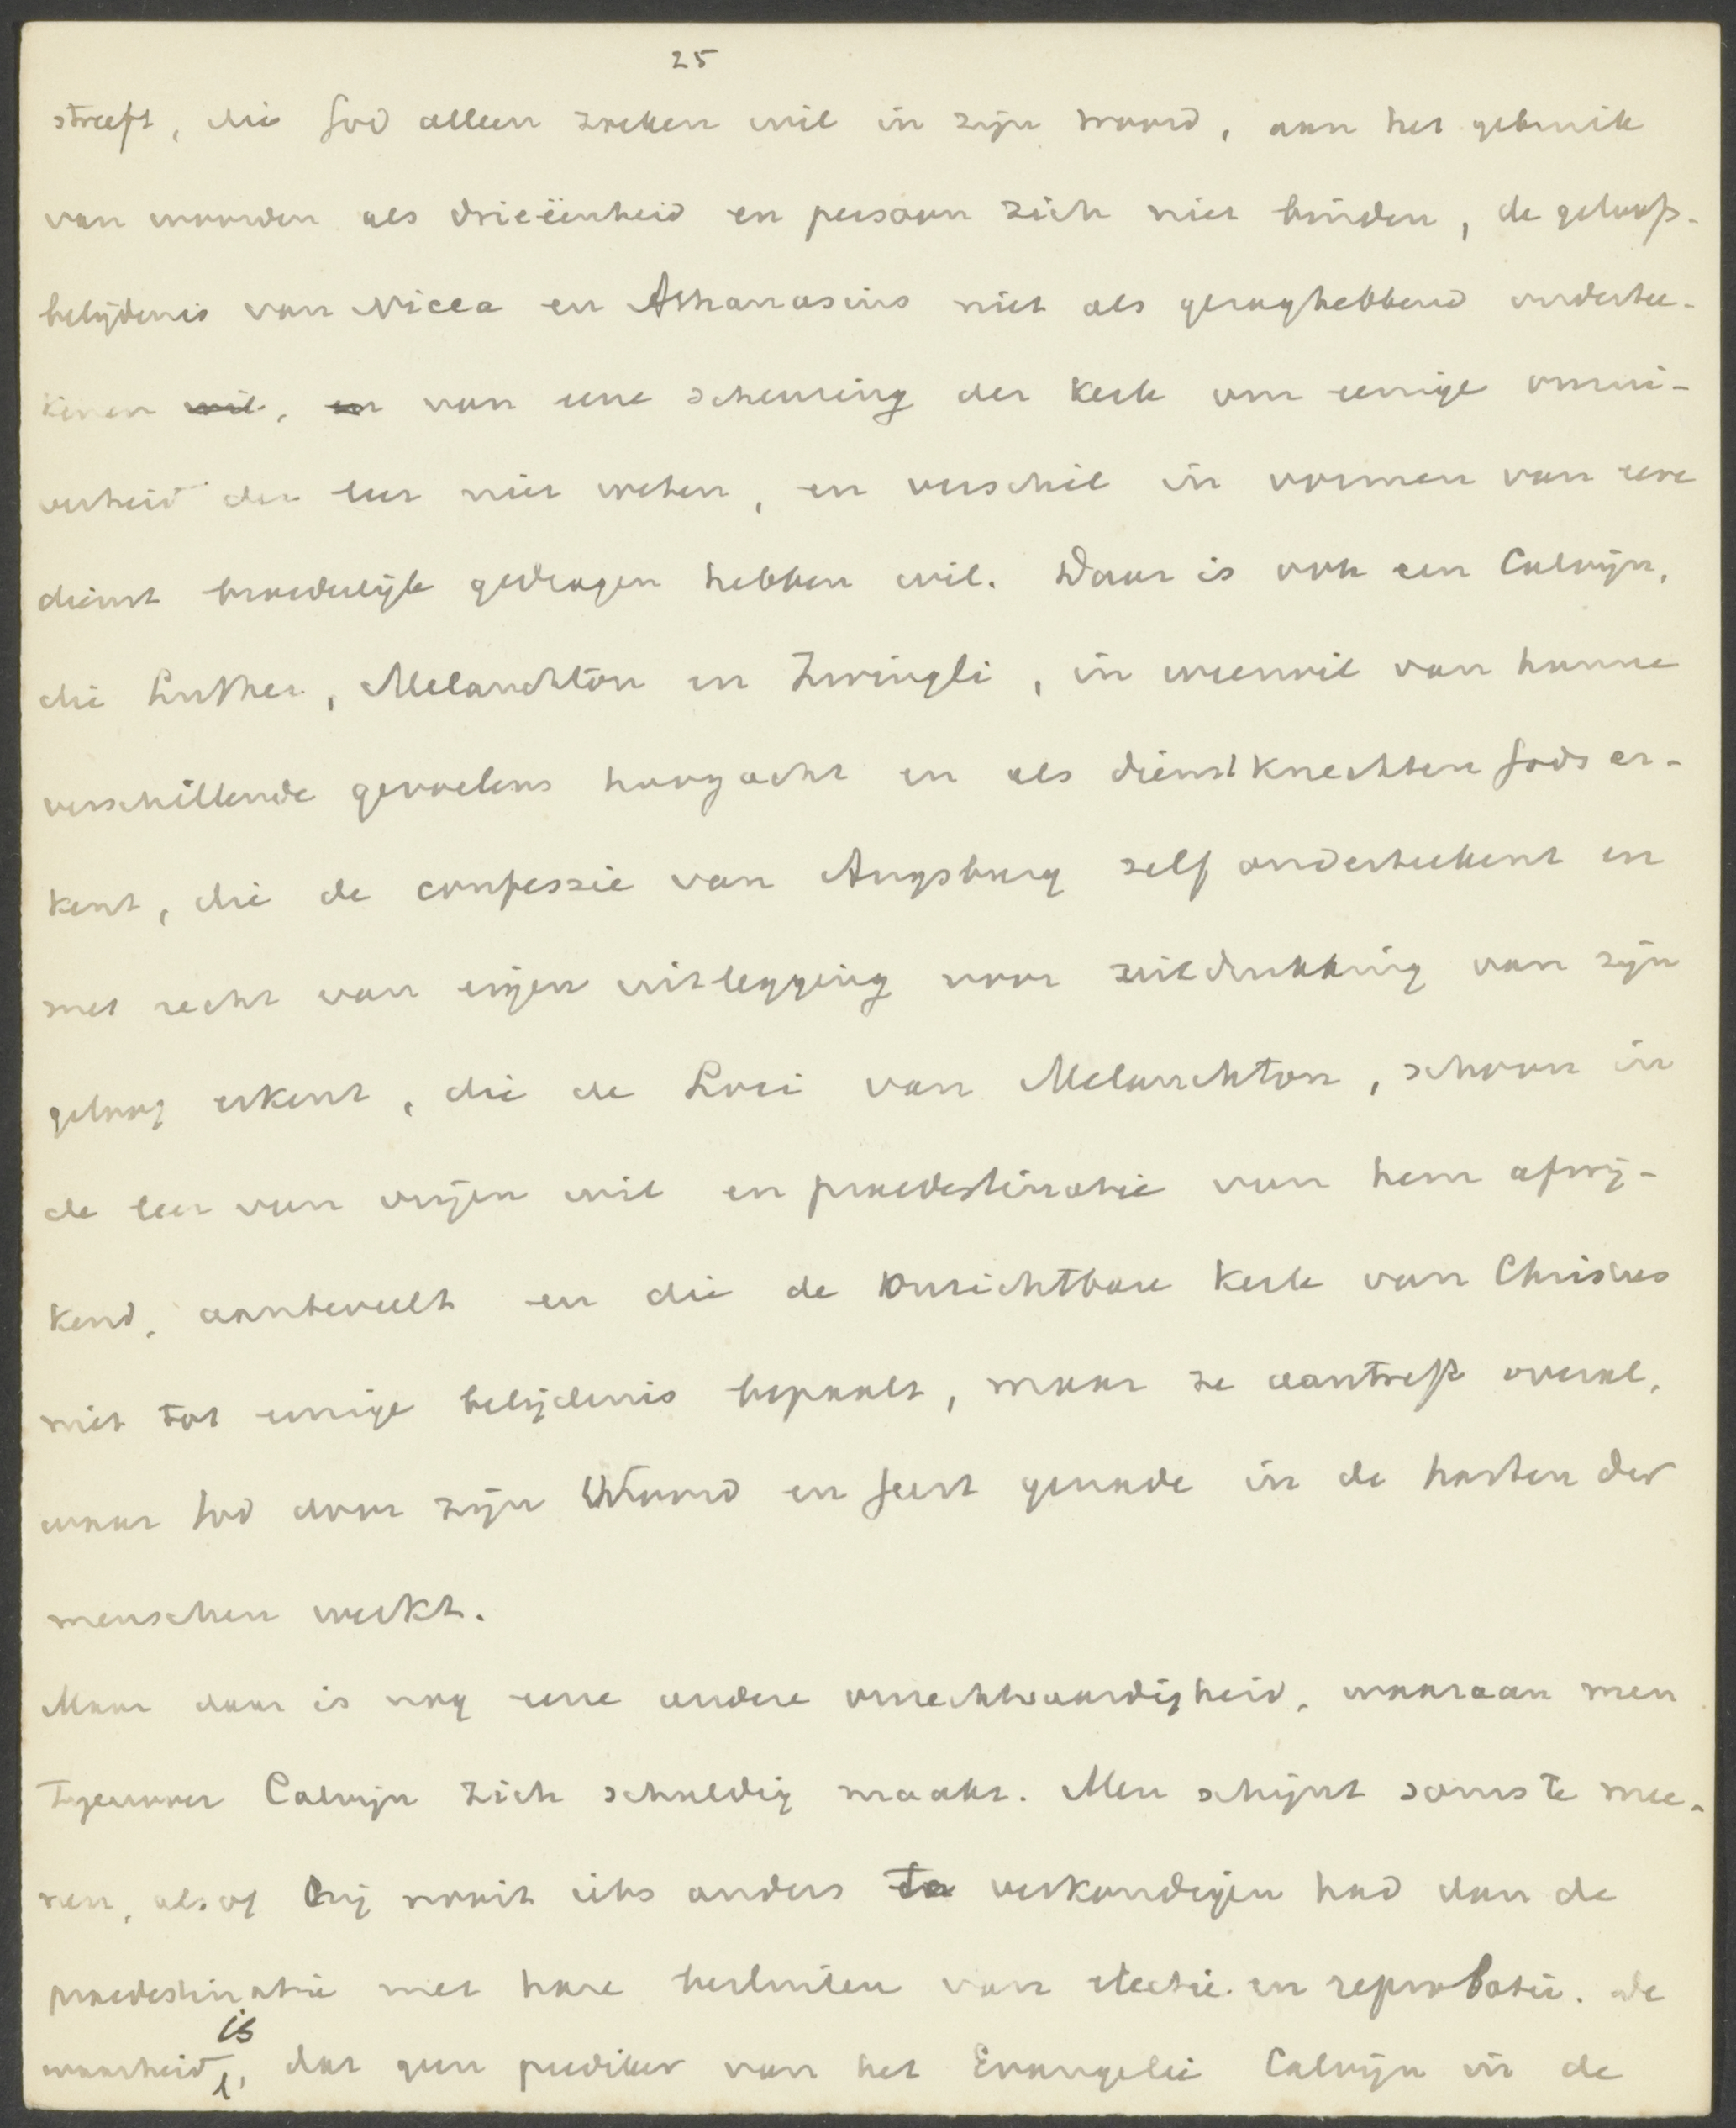 25
streeft, die God alleen zoeken wil in zijn woord, aan het gebruik
van woorden als drieëenheid en persoon zich niet binden, de geloofs-
belijdenis van Nicea en Athanasius niet als gezaghebbend onderte-
kenen wil, en van eene scheuring der Kerk om eenige onzui-
verheid der leer niet weten, en verschil in vormen van eere
dienst broederlijk gedragen hebben wil. Daar is ook een Calvijn,
die Luther, Melanchton en Zwingli, in weerwil van hunne
verschillende gevoelens hoogacht en als dienstknechten Gods er-
kent, die de confessie van Augsburg zelf onderteekent en
met recht van eigen uitlegging voor uitdrukking van zijn
geloof erkent, die de Loci van Melanchton, schoon in
de leer van vrijen wil en praedestinatie van hem afwij-
kend, aanbeveelt en die de onzichtbare Kerk van Christus
niet tot eenige belijdenis bepaalt, maar ze aantreft overal,
waar God door zijn Woord en Geest genade in de harten der
menschen werkt.
Maar daar is nog eene andere onrechtvaardigheid, waaraan men
tegenover Calvijn zich schuldig maakt. Men schijnt soms te mee-
nen, alsof hij nooit iets anders te verkondigen had dan de
praedestinatie met hare besluiten van electie en reprobatie. de
waarheid is, dat geen prediker van het Evangelie Calvijn in de